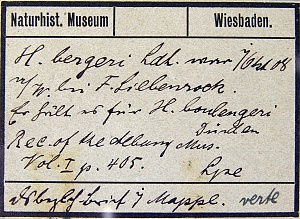 Naturhist. Museum Wiesbaden.
H. bergeri Ldt. war 7/Okt 08
bei F. Siebenrock.
Er hält es für H. boulengeri
Duncan
Rec. of the Albany Mus.
Vol. I p. 405. Type
Brief i/ Mappe. verte